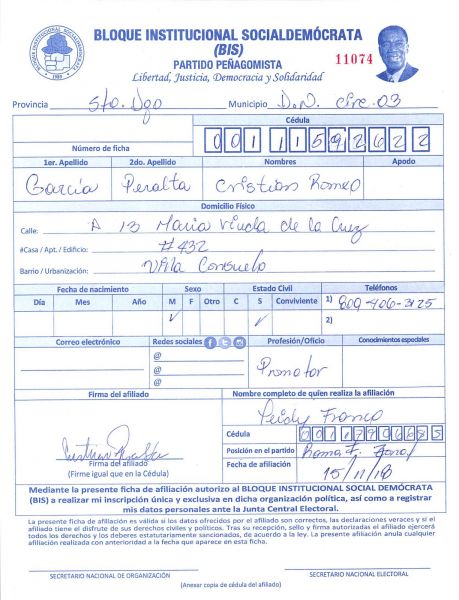 BLOQUE INSTITUCIONAL SOCIALDEMÓCRATA
(BIS)
PARTIDO PEÑAGOMISTA
Libertad, Justicia, Democracia y Solidaridad
11074
Provincia Sto. Dgo Municipio D.N. circ. 03
Cédula
Número de ficha 001 1159262 2
1er. Apellido 2do. Apellido Nombres Apodo
García Peralta Cristian Romeo
Domicilio Físico
Calle: A 13 Maria Viuda de la Cruz
#Casa / Apt. / Edificio: #432
Barrio / Urbanización: Villa Consuelo
Fecha de nacimiento Sexo Estado Civil Teléfonos
Día Mes Año M F Otro C S Conviviente 1) 809-406-3125
✓ ✓ 2)
Correo electrónico Redes sociales Profesión/Oficio Conocimientos especiales
@
@ Promotor
@
Firma del afiliado Nombre completo de quien realiza la afiliación
Franco
Cédula
Posición en el partido
Firma del afiliado
(Firme igual que en la Cédula)
Fecha de afiliación 15/11/18
Mediante la presente ficha de afiliación autorizo al BLOQUE INSTITUCIONAL SOCIAL DEMÓCRATA
(BIS) a realizar mi inscripción única y exclusiva en dicha organización política, así como a registrar
mis datos personales ante la Junta Central Electoral.
La presente ficha de afiliación es válida si los datos ofrecidos por el afiliado son correctos, las declaraciones veraces y si el
afiliado tiene el disfrute de sus derechos civiles y políticos. Tras su recepción, sello y firma autorizadas el afiliado ejercerá
todos los derechos y los deberes estatutariamente sancionados, de acuerdo a la ley. La presente afiliación anula cualquier
afiliación realizada con anterioridad a la fecha que aparece en esta ficha.
SECRETARIO NACIONAL DE ORGANIZACIÓN SECRETARIO NACIONAL ELECTORAL
(Anexar copia de cédula del afiliado)